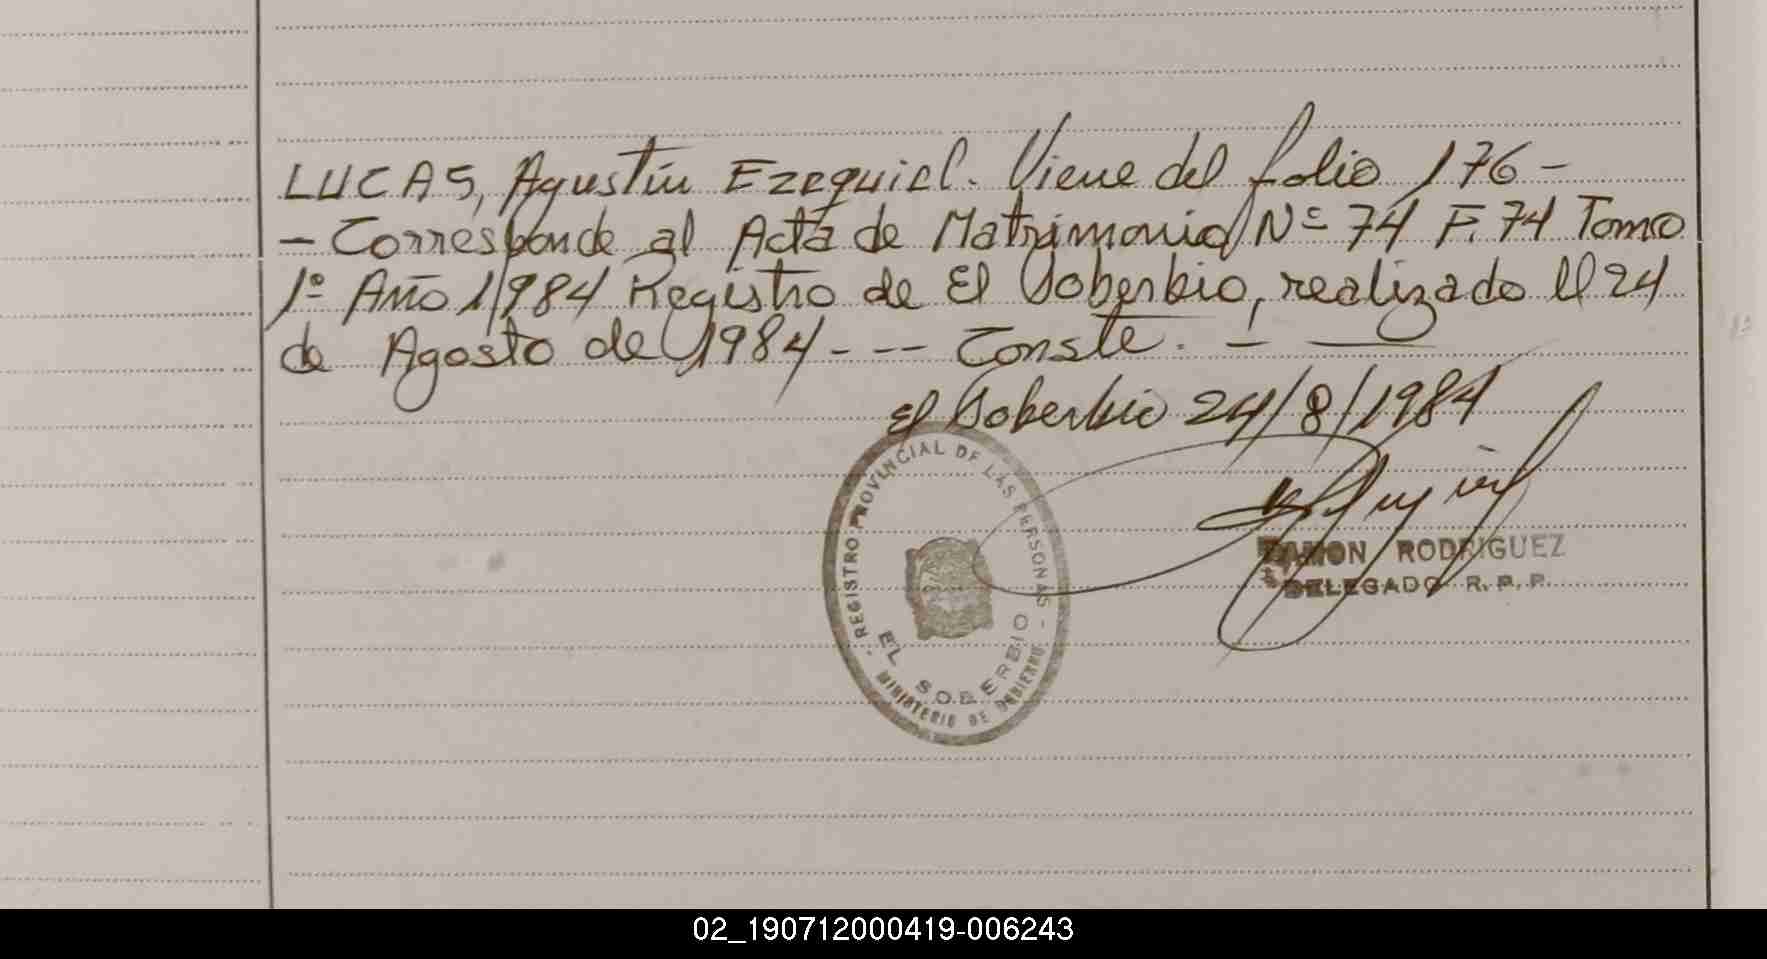 LUCAS, Agustín Ezequiel. Viene del folio 176 -
- Corresponde al Acta de Matrimonio Nº 74 F. 74 Tomo
1º Año 1984 Registro de El Soberbio, realizado el 24
de Agosto de 1984 - - - Conste. - —
El Soberbio 24/8/1984
- REGISTRO PROVINCIAL DE LAS PERSONAS -
EL SOBERBIO
MINISTERIO DE GOBIERNO
RAMON RODRIGUEZ
DELEGADO R. P. P.
02_190712000419-006243